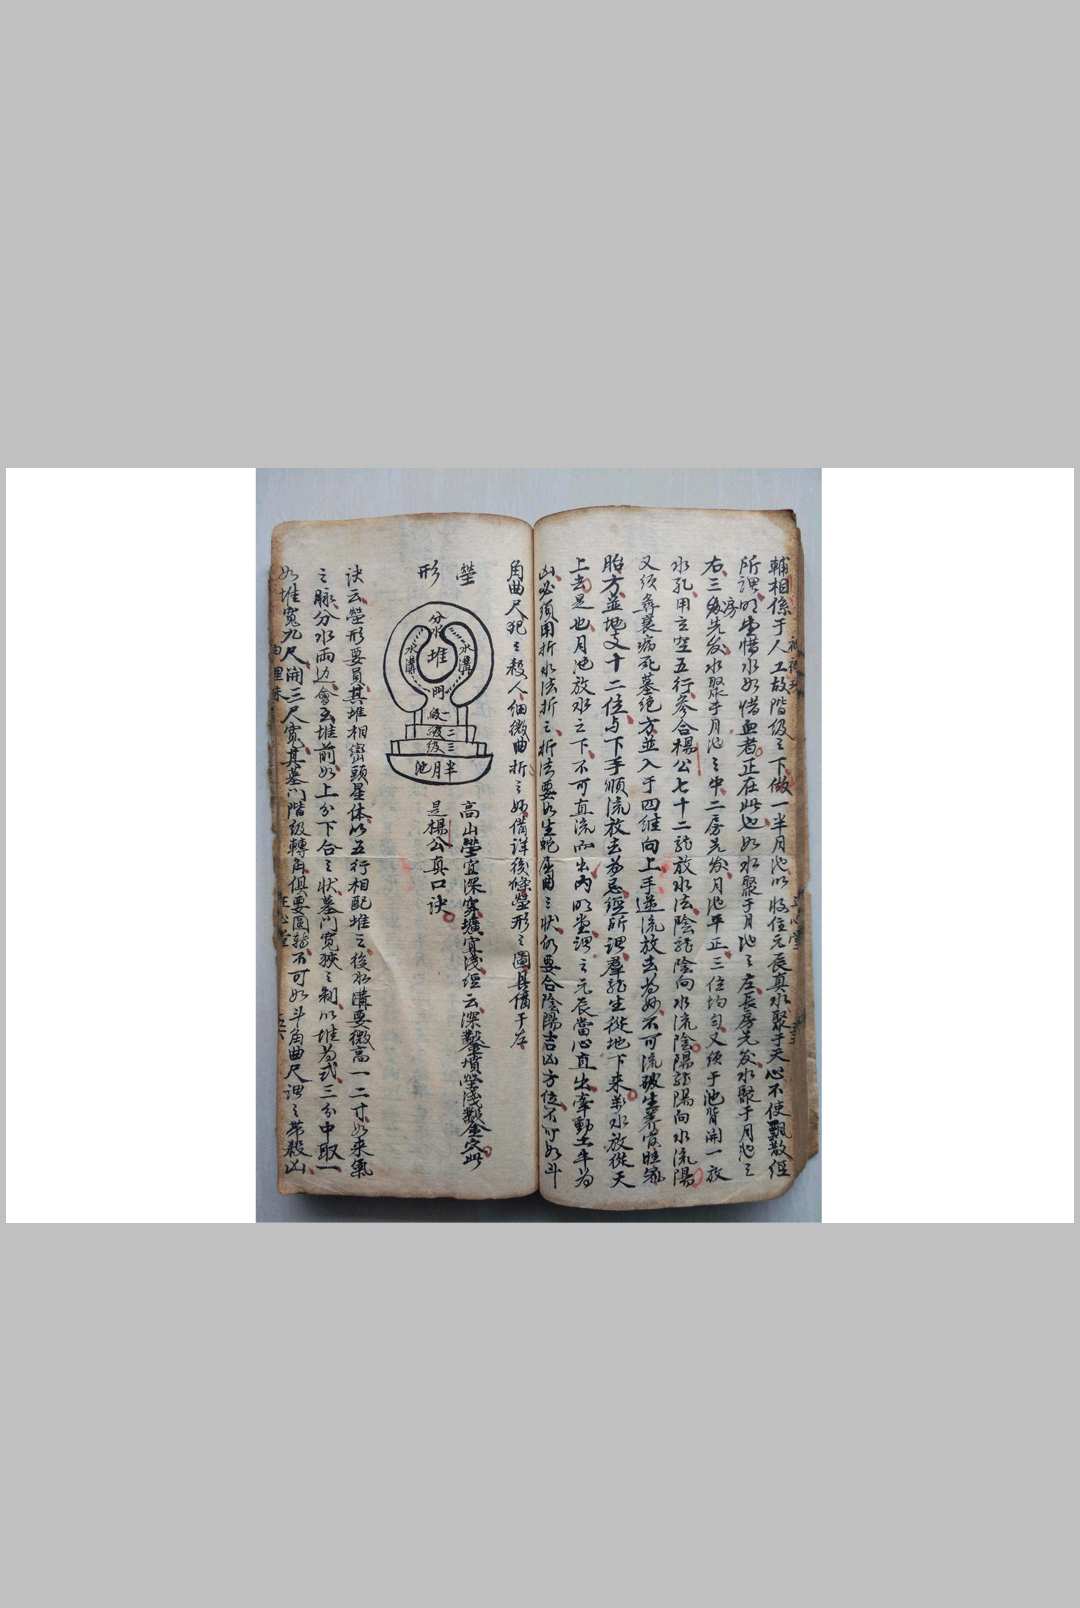 輔相係于人工故階級之下做一半月池以收住元辰真水聚于天心不使飄散經
所謂明堂惜水如惜血者正在此也如水聚于月池之左長房先發水聚于月池之
右三房先發水聚于月池之中二房先發月池平正三位均勻又須于池背開一放
水孔用玄空五行參合楊公七十二龍放水法陰龍陰向水流陰陽龍陽向水流陽
又須 衰病死墓絕方並入于四維向上手逆流放去為妙不可流破生養官旺
胎方並地支十二位与下手順流放去為忌經所謂羣龍生從地下來萬水放從天
上去是也月池放水之下不可直流而出內明堂謂之元辰當心直出牽動土牛為
凶必須用折水法折之折法要如生蛇屈曲之状仍要合陰陽吉凶方位不可如斗
角曲尺犯之殺人細微曲折之妙備詳後條塋形之圖具備于左
塋形
分水
水溝
堆
水溝
門
一級
二級
三級
半月池
高山塋宜深穿壙宜淺經云深鑿墳塋淺鑿金定此
是楊公真口訣
訣云塋形要員其堆相巒頭星体以五行相配堆之後水溝要微高一二寸如來氣
之脉分水兩边會至堆前如上分下合之状墓門寬狹之制以堆為式三分中取一
如堆寬九尺開三尺寬其墓門階級轉角俱要圓 不可如斗角曲尺謂之帶殺凶
正心堂